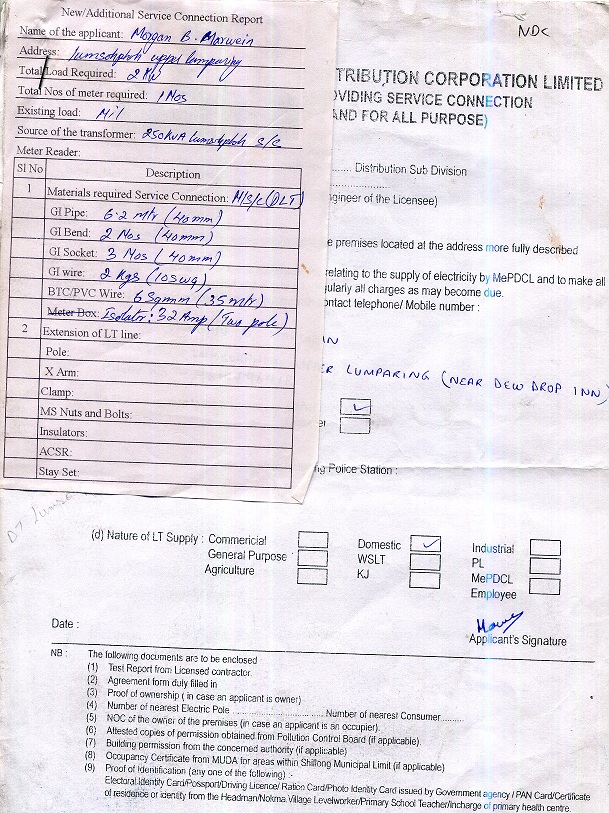 New/Additional Service Connection Report
Name of the applicant: Morgan B. Marwein
Address: Lumsohphoh upper lumparing
Total Load Required: 2 KW
Total Nos of meter required: 1 Nos
Existing load: Nil
Source of the transformer: 250KVA lumsohphoh S/S
Meter Reader:
Sl No Description
1 Materials required Service Connection: M/S/C (DLT)
GI Pipe: 6.2 Mtr (40mm)
GI Bend: 2 Nos (40mm)
GI Socket: 3 Nos (40mm)
GI wire: 2 Kgs (10SWG)
BTC/PVC Wire: 6 Sqmm (35mtr)
Meter Box: Isolator: 32 Amp (Two pole)
2 Extension of LT line:
Pole:
X Arm:
Clamp:
MS Nuts and Bolts:
Insulators:
ACSR:
Stay Set:
NDC
TRIBUTION CORPORATION LIMITED
OVIDING SERVICE CONNECTION
AND FOR ALL PURPOSE)
Distribution Sub Division
gineer of the Licensee)
e premises located at the address more fully described
relating to the supply of electricity by MePDCL and to make all
gularly all charges as may become due.
ontact telephone/ Mobile number :
IN
ER LUMPARING (NEAR DEW DROP INN)
er
ng Police Station :
(d) Nature of LT Supply : Commericial Domestic Industrial
General Purpose WSLT PL
Agriculture KJ MePDCL
Employee
Date :
Applicant's Signature
NB : The following documents are to be enclosed
(1) Test Report from Licensed contractor.
(2) Agreement form duly filled in
(3) Proof of ownership ( in case an applicant is owner)
(4) Number of nearest Electric Pole .............................. Number of nearest Consumer.........
(5) NOC of the owner of the premises (in case an applicant is an occupier).
(6) Attested copies of permission obtained from Pollution Control Board (if applicable).
(7) Building permission from the concerned authority (if applicable)
(8) Occupancy Certificate from MUDA for areas within Shillong Municipal Limit (if applicable)
(9) Proof of Identification (any one of the following) :-
Electoral Identity Card/Possport/Driving Licence/ Ration Card/Photo Identity Card issued by Government agency / PAN Card/Certificate
of residence or identity from the Headman/Nokma.Village Levelworker/Primary School Teacher/Incharge of primary health centre.